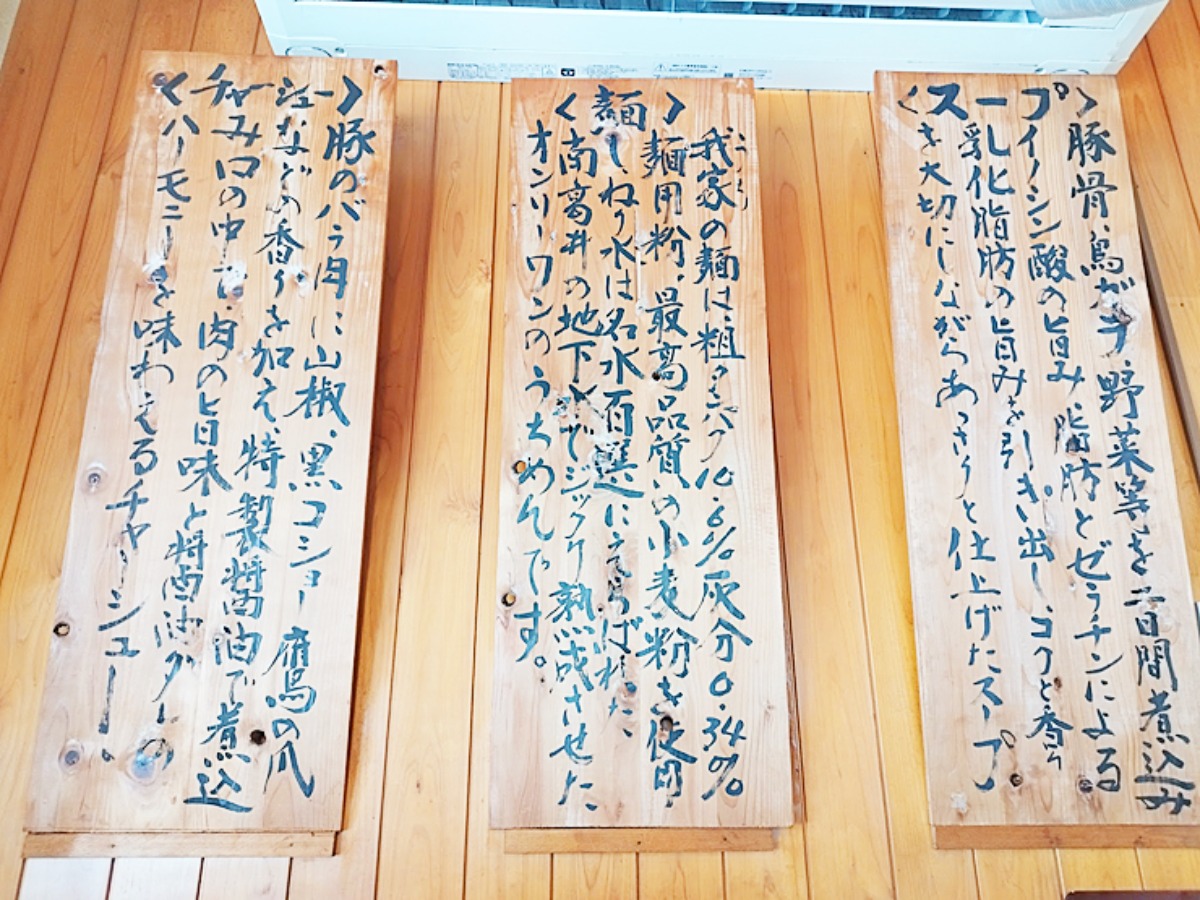 〈スープ〉
豚骨、鳥ガラ、野菜等を二日間煮込み
イノシン酸の旨み 脂肪とゼラチンによる
乳化脂肪の旨みを引き出し、コクと香り
を大切にしながらあっさりと仕上げたスープ。
〈麺〉
我家の麺は粗タンパク10.6%灰分0.34%
麺用粉、最高品質の小麦粉を使用
しねり水は名水百選にえらばれた、
南高井の地下水でジックリ熟成させた
オンリーワンのうちめんです。
〈チャーシュー〉
豚のバラ肉に山椒、黒コショー 鷹の爪
などの香りを加え、特製醤油で煮込
み口の中で、肉の旨味と醤油ダレの
ハーモニーを味わえるチャーシュー。